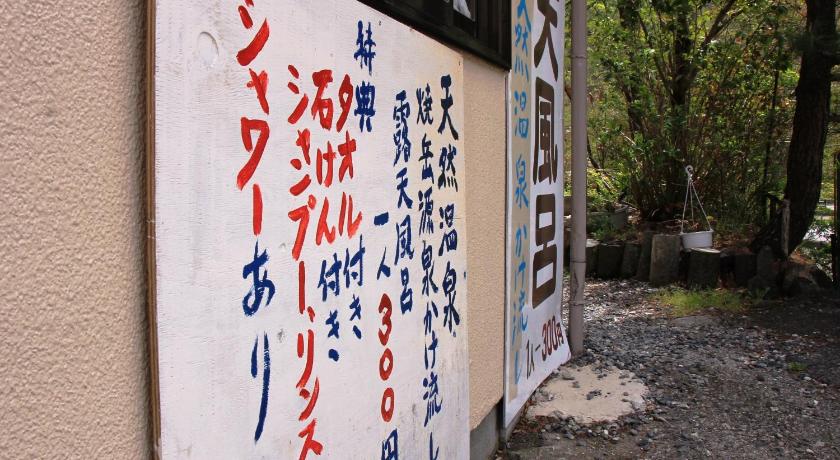 天然温泉
焼岳源泉かけ流し
露天風呂
一人300円
特典
タオル付き
石けん付き
シャンプー、リンス
シャワーあり
天風呂
天然温泉かけ流し
1人-300円